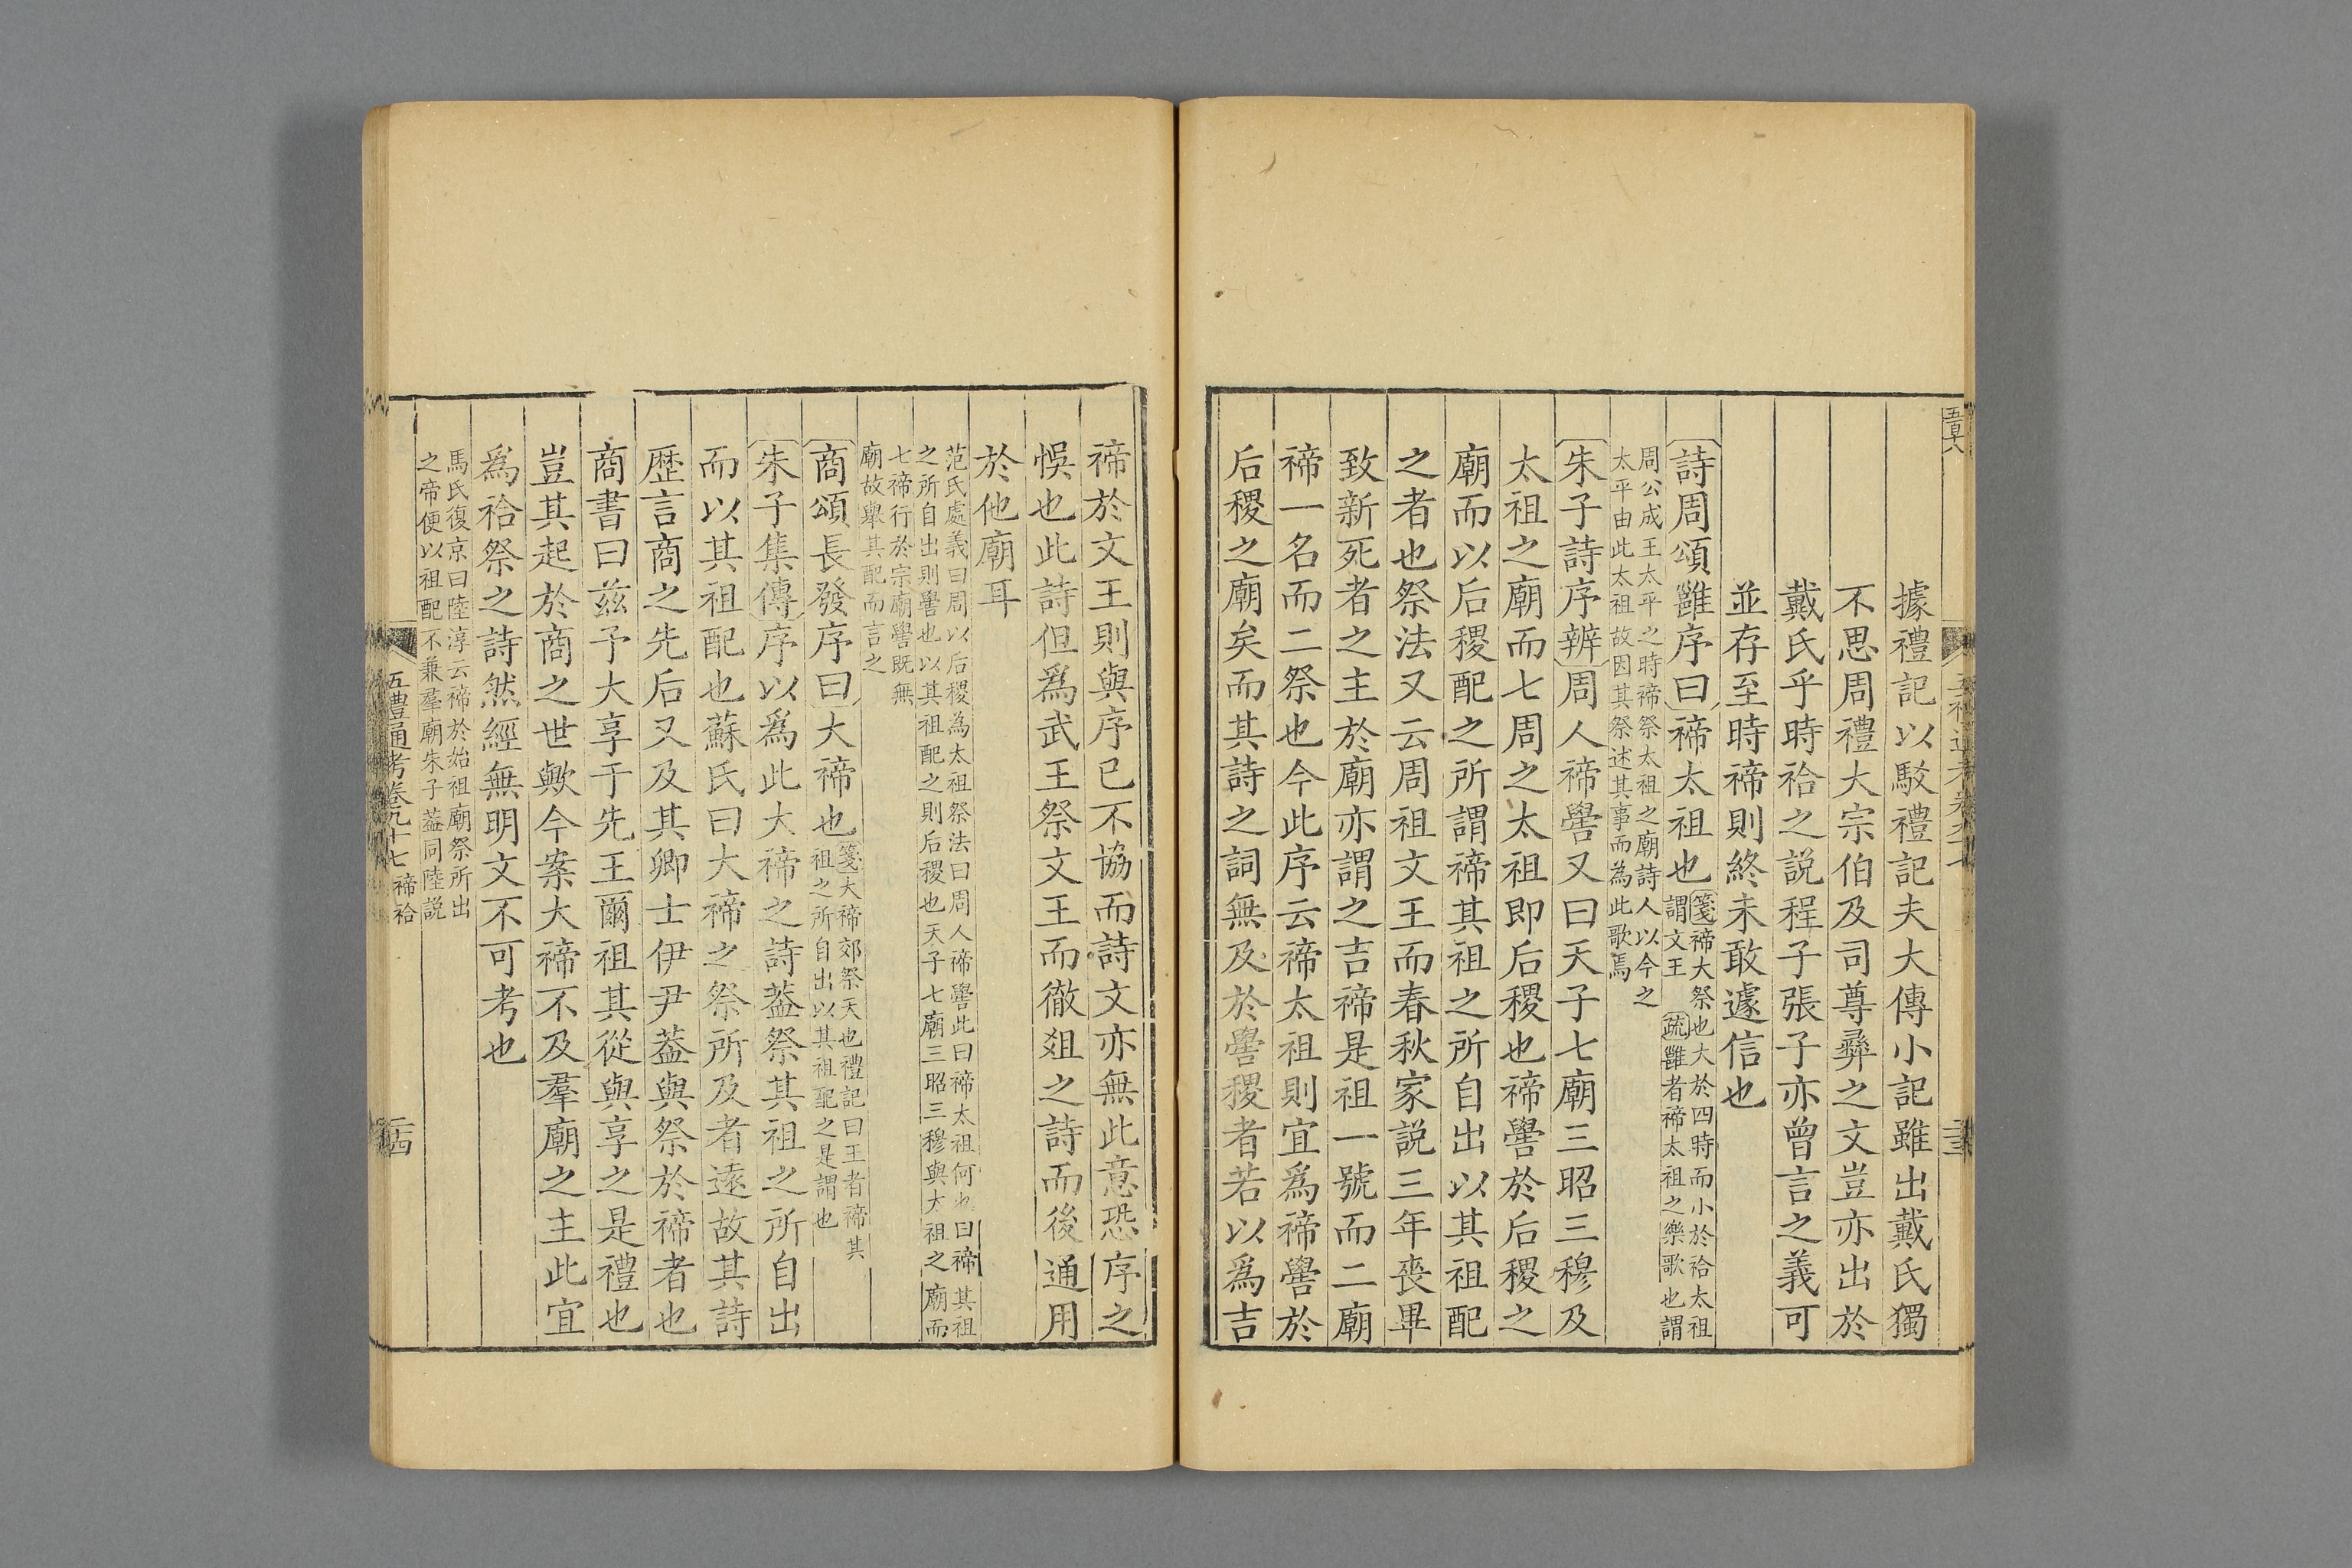 據禮記以駁禮記夫大傳小記雖出戴氏獨
不思周禮大宗伯及司尊彝之文豈亦出於
戴氏乎時祫之説程子張子亦曾言之義可
並存至時禘則終未敢遽信也
詩周頌雝序曰禘太祖也
箋禘大祭也大於四時而小於祫太祖
謂文王 疏雝者禘太祖之樂歌也謂
周公成王太平之時禘祭太祖之廟詩人以今之
太平由此太祖故因其祭述其事而為此歌焉
朱子詩序辨周人禘嚳又曰天子七廟三昭三穆及
太祖之廟而七周之太祖即后稷也禘嚳於后稷之
廟而以后稷配之所謂禘其祖之所自出以其祖配
之者也祭法又云周祖文王而春秋家説三年喪畢
致新死者之主於廟亦謂之吉禘是祖一號而二廟
禘一名而二祭也今此序云禘太祖則宜爲禘嚳於
后稷之廟矣而其詩之詞無及於嚳稷者若以爲吉
禘於文王則與序已不協而詩文亦無此意恐序之
悞也此詩但爲武王祭文王而徹俎之詩而後通用
於他廟耳
范氏處義曰周以后稷為太祖祭法曰周人禘嚳此曰禘太祖何也曰禘其祖
之所自出則嚳也以其祖配之則后稷也天子七廟三昭三穆與大祖之廟而
七禘行於宗廟嚳既無
廟故舉其配而言之
商頌長發序曰大禘也
箋大禘郊祭天也禮記曰王者禘其
祖之所自出以其祖配之是謂也
朱子集傳序以爲此大禘之詩葢祭其祖之所自出
而以其祖配也蘇氏曰大禘之祭所及者遠故其詩
歴言商之先后又及其卿士伊尹葢與祭於禘者也
商書曰茲予大享于先王爾祖其從與享之是禮也
豈其起於商之世歟今案大禘不及羣廟之主此宜
爲祫祭之詩然經無明文不可考也
馬氏復京曰陸淳云禘於始祖廟祭所出
之帝便以祖配不兼羣廟朱子葢同陸説
五禮通考卷九十七 禘祫
二十四